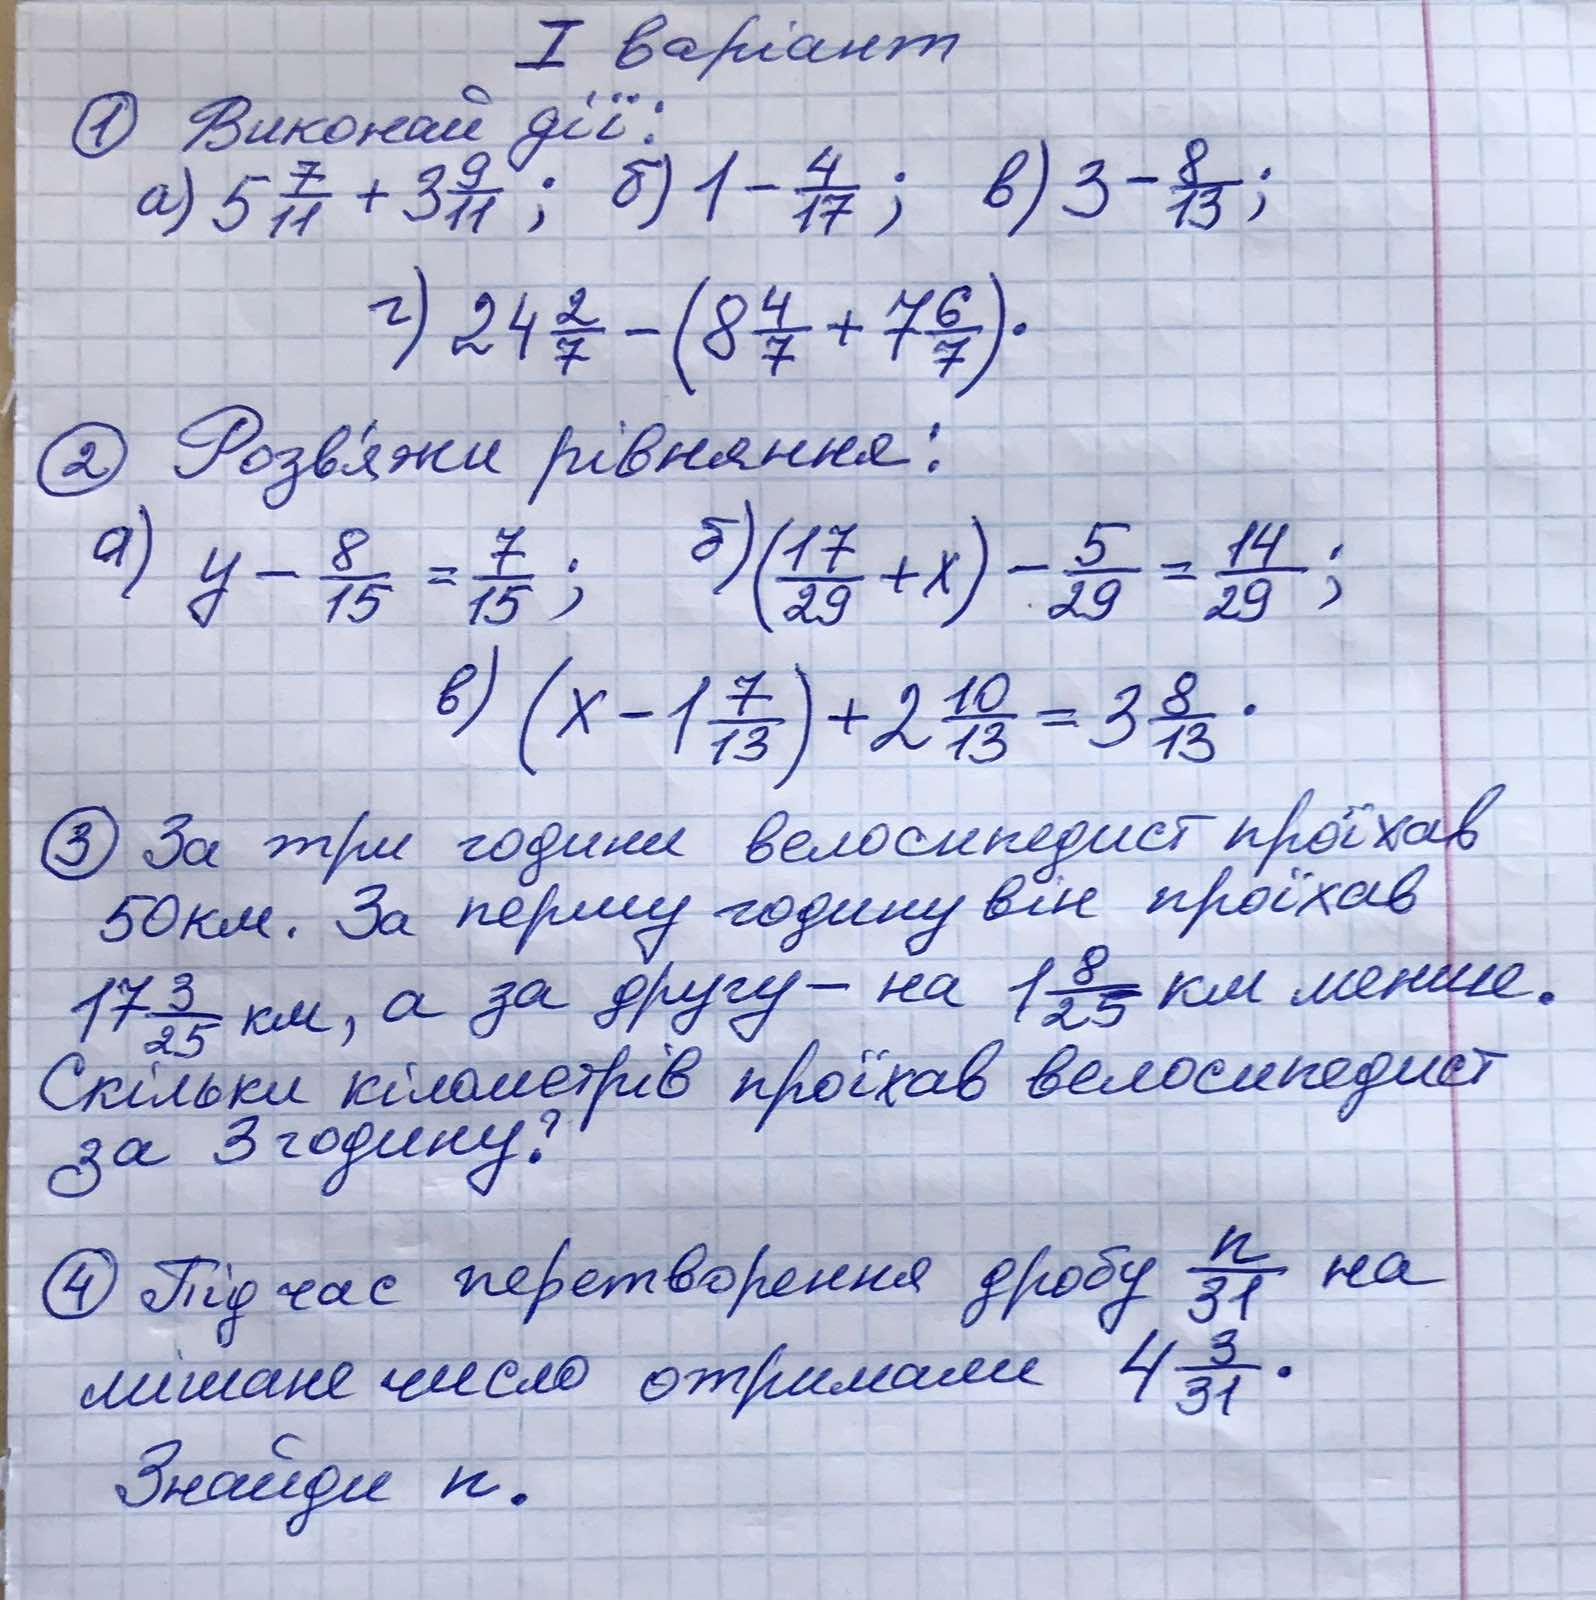 I варіант
① Виконай дії:
а) 5 7/11 + 3 9/11; б) 1 - 4/17; в) 3 - 8/13;
г) 24 2/7 - (8 4/7 + 7 6/7).
② Розв'яжи рівняння:
а) y - 8/15 = 7/15; б) (17/29 + x) - 5/29 = 14/29;
в) (x - 1 7/13) + 2 10/13 = 3 8/13.
③ За три години велосипедист проїхав
50км. За першу годину він проїхав
17 3/25 км, а за другу – на 1 8/25 км менше.
Скільки кілометрів проїхав велосипедист
за 3 годину?
④ Під час перетворення дробу n/31 на
мішане число отримали 4 3/31.
Знайди n.